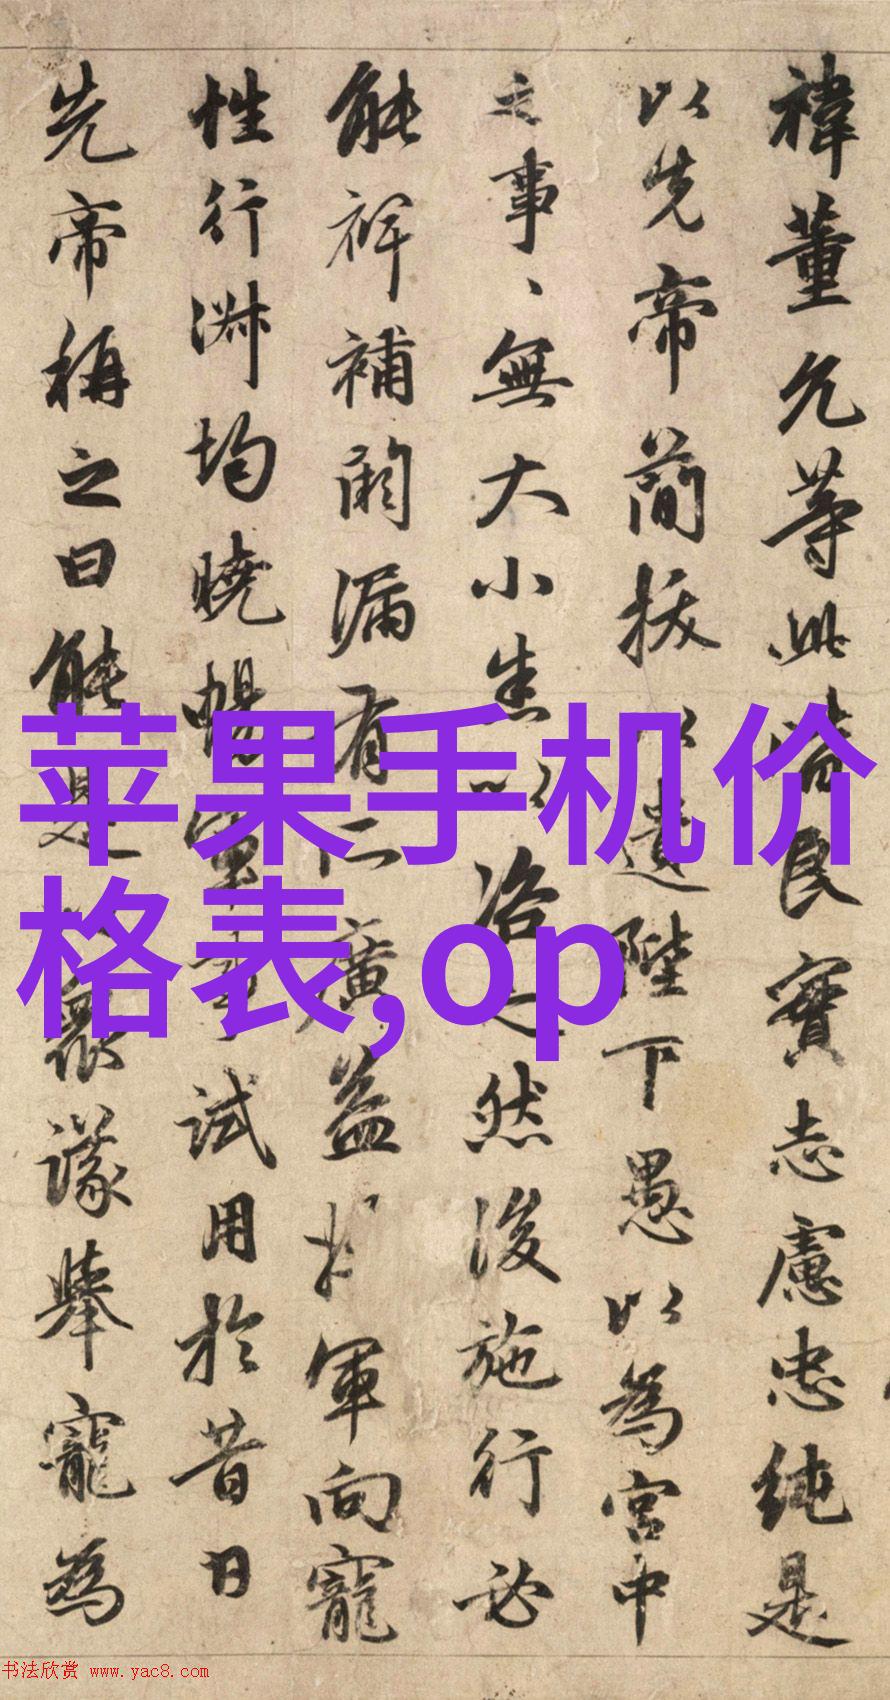 禕董允等此皆良實志慮忠純是
以先帝簡拔以遺陛下愚以為宮中
之事、無大小悉以咨之然後施行必
能裨補闕漏有廣益將軍向寵
性行淑均曉暢軍事試用於昔日
先帝稱之曰能是眾議舉寵為
苹果手机价
格表,op
书法欣赏 www.yac8.com